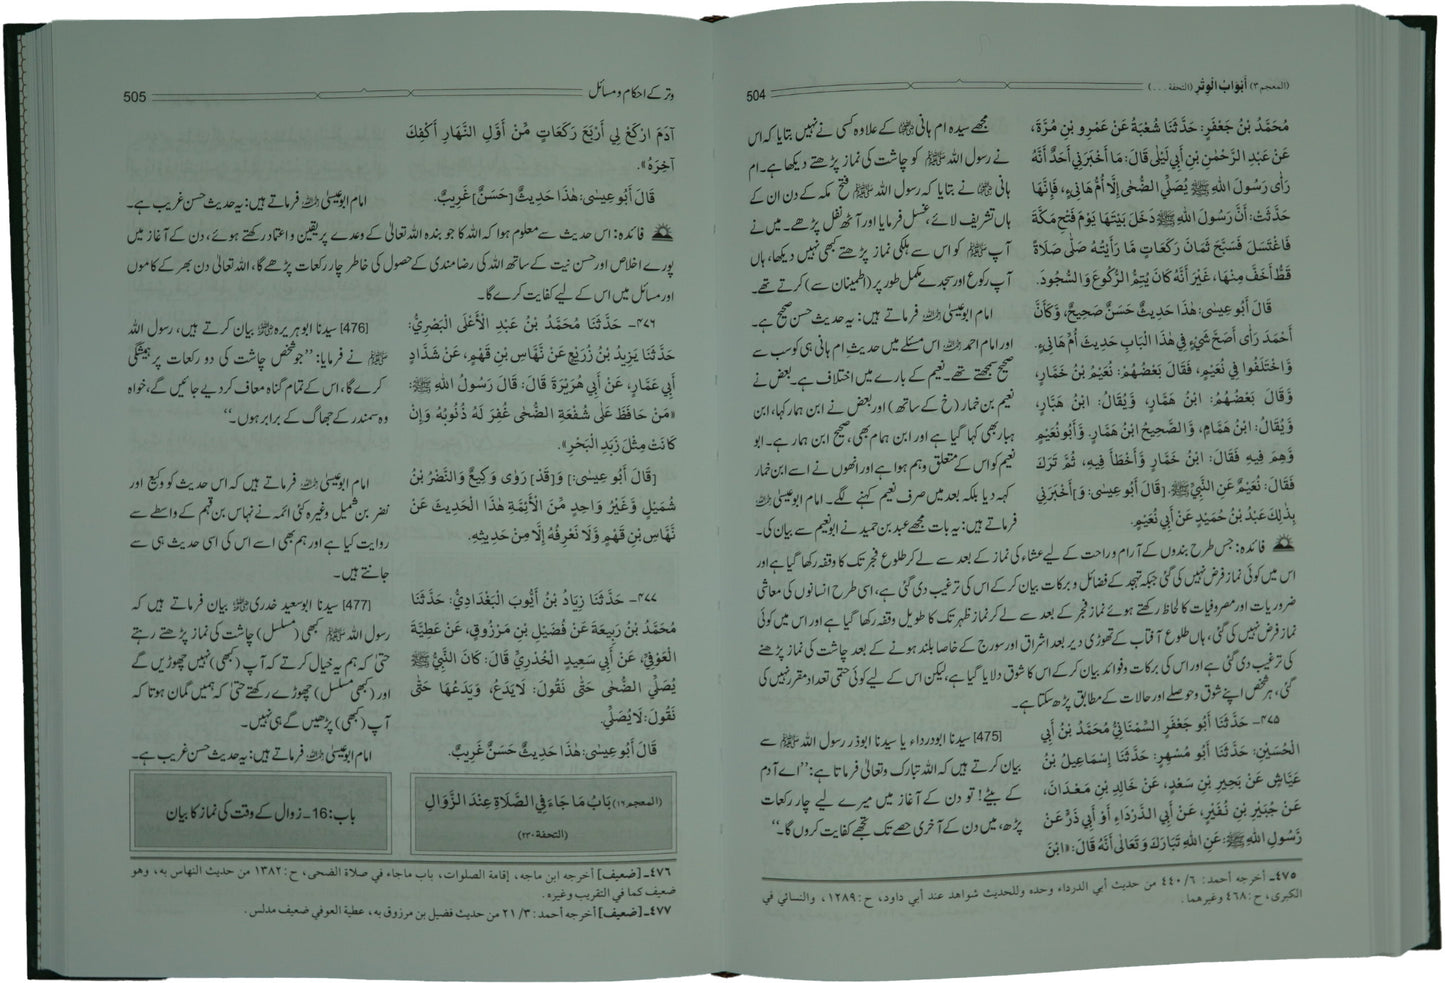 (المعجم ٣) أَبْوَابُ الْوِتْرِ (التحفة . . .)
504
مُحَمَّدُ بْنُ جَعْفَرٍ: حَدَّثَنَا شُعْبَةُ عَنْ عَمْرِو بْنِ مُرَّةَ،
عَنْ عَبْدِ الرَّحْمٰنِ بْنِ أَبِي لَيْلَى قَالَ: مَا أَخْبَرَنِي أَحَدٌ أَنَّهُ
رَأَى رَسُولَ اللهِ ﷺ يُصَلِّي الضُّحَى إِلَّا أُمُّ هَانِيءٍ، فَإِنَّهَا
حَدَّثَتْ: أَنَّ رَسُولَ اللهِ ﷺ دَخَلَ بَيْتَهَا يَوْمَ فَتْحِ مَكَّةَ
فَاغْتَسَلَ فَسَبَّحَ ثَمَانَ رَكَعَاتٍ مَا رَأَيْتُهُ صَلَّى صَلَاةً
قَطُّ أَخَفَّ مِنْهَا، غَيْرَ أَنَّهُ كَانَ يُتِمُّ الرُّكُوعَ وَالسُّجُودَ.
قَالَ أَبُو عِيسَى: هٰذَا حَدِيثٌ حَسَنٌ صَحِيحٌ، وَكَأَنَّ
أَحْمَدَ رَأَى أَصَحَّ شَيْءٍ فِي هٰذَا الْبَابِ حَدِيثَ أُمِّ هَانِيءٍ.
وَاخْتَلَفُوا فِي نُعَيْمٍ، فَقَالَ بَعْضُهُمْ: نُعَيْمُ بْنُ خَمَّارٍ،
وَقَالَ بَعْضُهُمْ: ابْنُ هَمَّارٍ، وَيُقَالُ: ابْنُ هَبَّارٍ،
وَيُقَالُ: ابْنُ هَمَّامٍ، وَالصَّحِيحُ ابْنُ هَمَّارٍ. وَأَبُو نُعَيْمٍ
وَهِمَ فِيهِ فَقَالَ: ابْنُ خَمَّارٍ وَأَخْطَأَ فِيهِ، ثُمَّ تَرَكَ
فَقَالَ: نُعَيْمٌ عَنِ النَّبِيِّ ﷺ. [قَالَ أَبُو عِيسَى: وَ]أَخْبَرَنِي
بِذٰلِكَ عَبْدُ بْنُ حُمَيْدٍ عَنْ أَبِي نُعَيْمٍ.
مجھے سیدہ ام ہانی ؓ کے علاوہ کسی نے نہیں بتایا کہ اس
نے رسول اللہ ﷺ کو چاشت کی نماز پڑھتے دیکھا ہے۔ ام
ہانی ؓ نے بتایا کہ رسول اللہ ﷺ فتح مکہ کے دن ان کے
ہاں تشریف لائے، غسل فرمایا اور آٹھ نفل پڑھے۔ میں نے
آپ ﷺ کو اس سے ہلکی نماز پڑھتے کبھی نہیں دیکھا، ہاں
آپ رکوع اور سجدے مکمل طور پر (اطمینان سے) کرتے تھے۔
امام ابوعیسیٰ ؒ فرماتے ہیں: یہ حدیث حسن صحیح ہے۔
اور امام احمد ؒ اس مسئلے میں حدیثِ ام ہانی ہی کو سب سے
صحیح سمجھتے تھے۔ نعیم کے بارے میں اختلاف ہے۔ بعض نے
نعیم بن خمار (خ کے ساتھ) اور بعض نے ابن ہمار کہا، ابن
ہبار بھی کہا گیا ہے اور ابن ہمام بھی، صحیح ابن ہمار ہے۔ ابو
نعیم کو اس کے متعلق وہم ہوا ہے اور انھوں نے اسے ابن خمار
کہہ دیا بلکہ بعد میں صرف نعیم کہنے لگے۔ امام ابوعیسیٰ ؒ
فرماتے ہیں: یہ بات مجھے عبد بن حمید نے ابونعیم سے بیان کی۔
فائدہ: جس طرح بندوں کے آرام و راحت کے لیے عشاء کی نماز کے بعد سے لے کر طلوع فجر تک کا وقفہ رکھا گیا ہے اور
اس میں کوئی نماز فرض نہیں کی گئی جبکہ تہجد کے فضائل و برکات بیان کر کے اس کی ترغیب دی گئی ہے، اسی طرح انسانوں کی معاشی
ضروریات اور مصروفیات کا لحاظ رکھتے ہوئے نماز فجر کے بعد سے لے کر نماز ظہر تک کا طویل وقفہ رکھا گیا ہے اور اس میں کوئی
نماز فرض نہیں کی گئی، ہاں طلوع آفتاب کے تھوڑی دیر بعد اشراق اور سورج کے خاصا بلند ہونے کے بعد چاشت کی نماز پڑھنے
کی ترغیب دی گئی ہے اور اس کی برکات و فوائد بیان کر کے اس کا شوق دلایا گیا ہے، لیکن اس کے لیے کوئی حتمی تعداد مقرر نہیں کی
گئی، ہر شخص اپنے شوق و حوصلے اور حالات کے مطابق پڑھ سکتا ہے۔
٤٧٥- حَدَّثَنَا أَبُو جَعْفَرٍ السِّمْنَانِيُّ مُحَمَّدُ بْنُ أَبِي
الْحُسَيْنِ: حَدَّثَنَا أَبُو مُسْهِرٍ: حَدَّثَنَا إِسْمَاعِيلُ بْنُ
عَيَّاشٍ عَنْ بَحِيرِ بْنِ سَعْدٍ، عَنْ خَالِدِ بْنِ مَعْدَانَ،
عَنْ جُبَيْرِ بْنِ نُفَيْرٍ، عَنْ أَبِي الدَّرْدَاءِ أَوْ أَبِي ذَرٍّ عَنْ
رَسُولِ اللهِ ﷺ: عَنِ اللهِ تَبَارَكَ وَتَعَالَى أَنَّهُ قَالَ: «ابْنَ
[475] سیدنا ابودرداء یا سیدنا ابوذر رسول اللہ ﷺ سے
بیان کرتے ہیں کہ اللہ تبارک و تعالیٰ فرماتا ہے: ’’اے آدم
کے بیٹے! تو دن کے آغاز میں میرے لیے چار رکعات
پڑھ، میں دن کے آخری حصے تک تجھے کفایت کروں گا۔‘‘
٤٧٥- أخرجه أحمد: ٦/ ٤٤٠ من حديث أبي الدرداء وحده وللحديث شواهد عند أبي داود، ح: ١٢٨٩، والنسائي في
الكبرى، ح: ٤٦٨ وغيرهما.
وتر کے احکام و مسائل
505
آدَمَ ارْكَعْ لِي أَرْبَعَ رَكَعَاتٍ مِّنْ أَوَّلِ النَّهَارِ أَكْفِكَ
آخِرَهُ».
قَالَ أَبُو عِيسَى: هٰذَا حَدِيثٌ [حَسَنٌ] غَرِيبٌ.
امام ابوعیسیٰ ؒ فرماتے ہیں: یہ حدیث حسن غریب ہے۔
فائدہ: اس حدیث سے معلوم ہوا کہ اللہ کا جو بندہ اللہ تعالیٰ کے وعدے پر یقین و اعتماد رکھتے ہوئے، دن کے آغاز میں
پورے اخلاص اور حسن نیت کے ساتھ اللہ کی رضا مندی کے حصول کی خاطر چار رکعات پڑھے گا، اللہ تعالیٰ دن بھر کے کاموں
اور مسائل میں اس کے لیے کفایت کرے گا۔
٤٧٦- حَدَّثَنَا مُحَمَّدُ بْنُ عَبْدِ الْأَعْلَى الْبَصْرِيُّ:
حَدَّثَنَا يَزِيدُ بْنُ زُرَيْعٍ عَنْ نَهَّاسِ بْنِ قَهْمٍ، عَنْ شَدَّادٍ
أَبِي عَمَّارٍ، عَنْ أَبِي هُرَيْرَةَ قَالَ: قَالَ رَسُولُ اللهِ ﷺ:
«مَنْ حَافَظَ عَلَى شُفْعَةِ الضُّحَى غُفِرَ لَهُ ذُنُوبُهُ وَإِنْ
كَانَتْ مِثْلَ زَبَدِ الْبَحْرِ».
[قَالَ أَبُو عِيسَى:] وَ[قَدْ] رَوَى وَكِيعٌ وَالنَّضْرُ بْنُ
شُمَيْلٍ وَغَيْرُ وَاحِدٍ مِّنَ الْأَئِمَّةِ هٰذَا الْحَدِيثَ عَنْ
نَهَّاسِ بْنِ قَهْمٍ وَلَا نَعْرِفُهُ إِلَّا مِنْ حَدِيثِهِ.
[476] سیدنا ابوہریرہ ؓ بیان کرتے ہیں، رسول اللہ
ﷺ نے فرمایا: ’’جو شخص چاشت کی دو رکعات پر ہمیشگی
کرے گا، اس کے تمام گناہ معاف کر دیے جائیں گے، خواہ
وہ سمندر کے جھاگ کے برابر ہوں۔‘‘
امام ابوعیسیٰ ؒ فرماتے ہیں کہ اس حدیث کو وکیع اور
نضر بن شمیل وغیرہ کئی ائمہ نے نہاس بن قہم کے واسطے سے
روایت کیا ہے اور ہم بھی اسے اس کی اسی حدیث ہی سے
جانتے ہیں۔
٤٧٧- حَدَّثَنَا زِيَادُ بْنُ أَيُّوبَ الْبَغْدَادِيُّ: حَدَّثَنَا
مُحَمَّدُ بْنُ رَبِيعَةَ عَنْ فُضَيْلِ بْنِ مَرْزُوقٍ، عَنْ عَطِيَّةَ
الْعَوْفِيِّ، عَنْ أَبِي سَعِيدٍ الْخُدْرِيِّ قَالَ: كَانَ النَّبِيُّ ﷺ
يُصَلِّي الضُّحَى حَتَّى نَقُولَ: لَا يَدَعُ، وَيَدَعُهَا حَتَّى
نَقُولَ: لَا يُصَلِّي.
قَالَ أَبُو عِيسَى: هٰذَا حَدِيثٌ حَسَنٌ غَرِيبٌ.
[477] سیدنا ابوسعید خدری ؓ بیان فرماتے ہیں کہ
رسول اللہ ﷺ کبھی (مسلسل) چاشت کی نماز پڑھتے رہتے
حتیٰ کہ ہم یہ خیال کرتے کہ آپ (کبھی) نہیں چھوڑیں گے
اور (کبھی مسلسل) چھوڑے رکھتے حتیٰ کہ ہمیں گمان ہوتا کہ
آپ (کبھی) پڑھیں گے ہی نہیں۔
امام ابوعیسیٰ ؒ فرماتے ہیں: یہ حدیث حسن غریب ہے۔
(المعجم ١٦) بَابُ مَا جَاءَ فِي الصَّلَاةِ عِنْدَ الزَّوَالِ
(التحفة ٢٣٠)
باب: 16- زوال کے وقت کی نماز کا بیان
٤٧٦- [ضعيف] أخرجه ابن ماجه، إقامة الصلوات، باب ماجاء في صلاة الضحى، ح: ١٣٨٢ من حديث النهاس به، وهو
ضعيف كما في التقريب وغيره.
٤٧٧- [ضعيف] أخرجه أحمد: ٣/ ٢١ من حديث فضيل بن مرزوق به، عطية العوفي ضعيف مدلس.